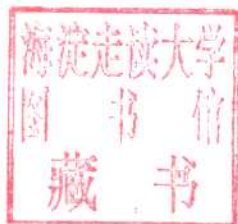 海淀走读大学
图书馆
藏书